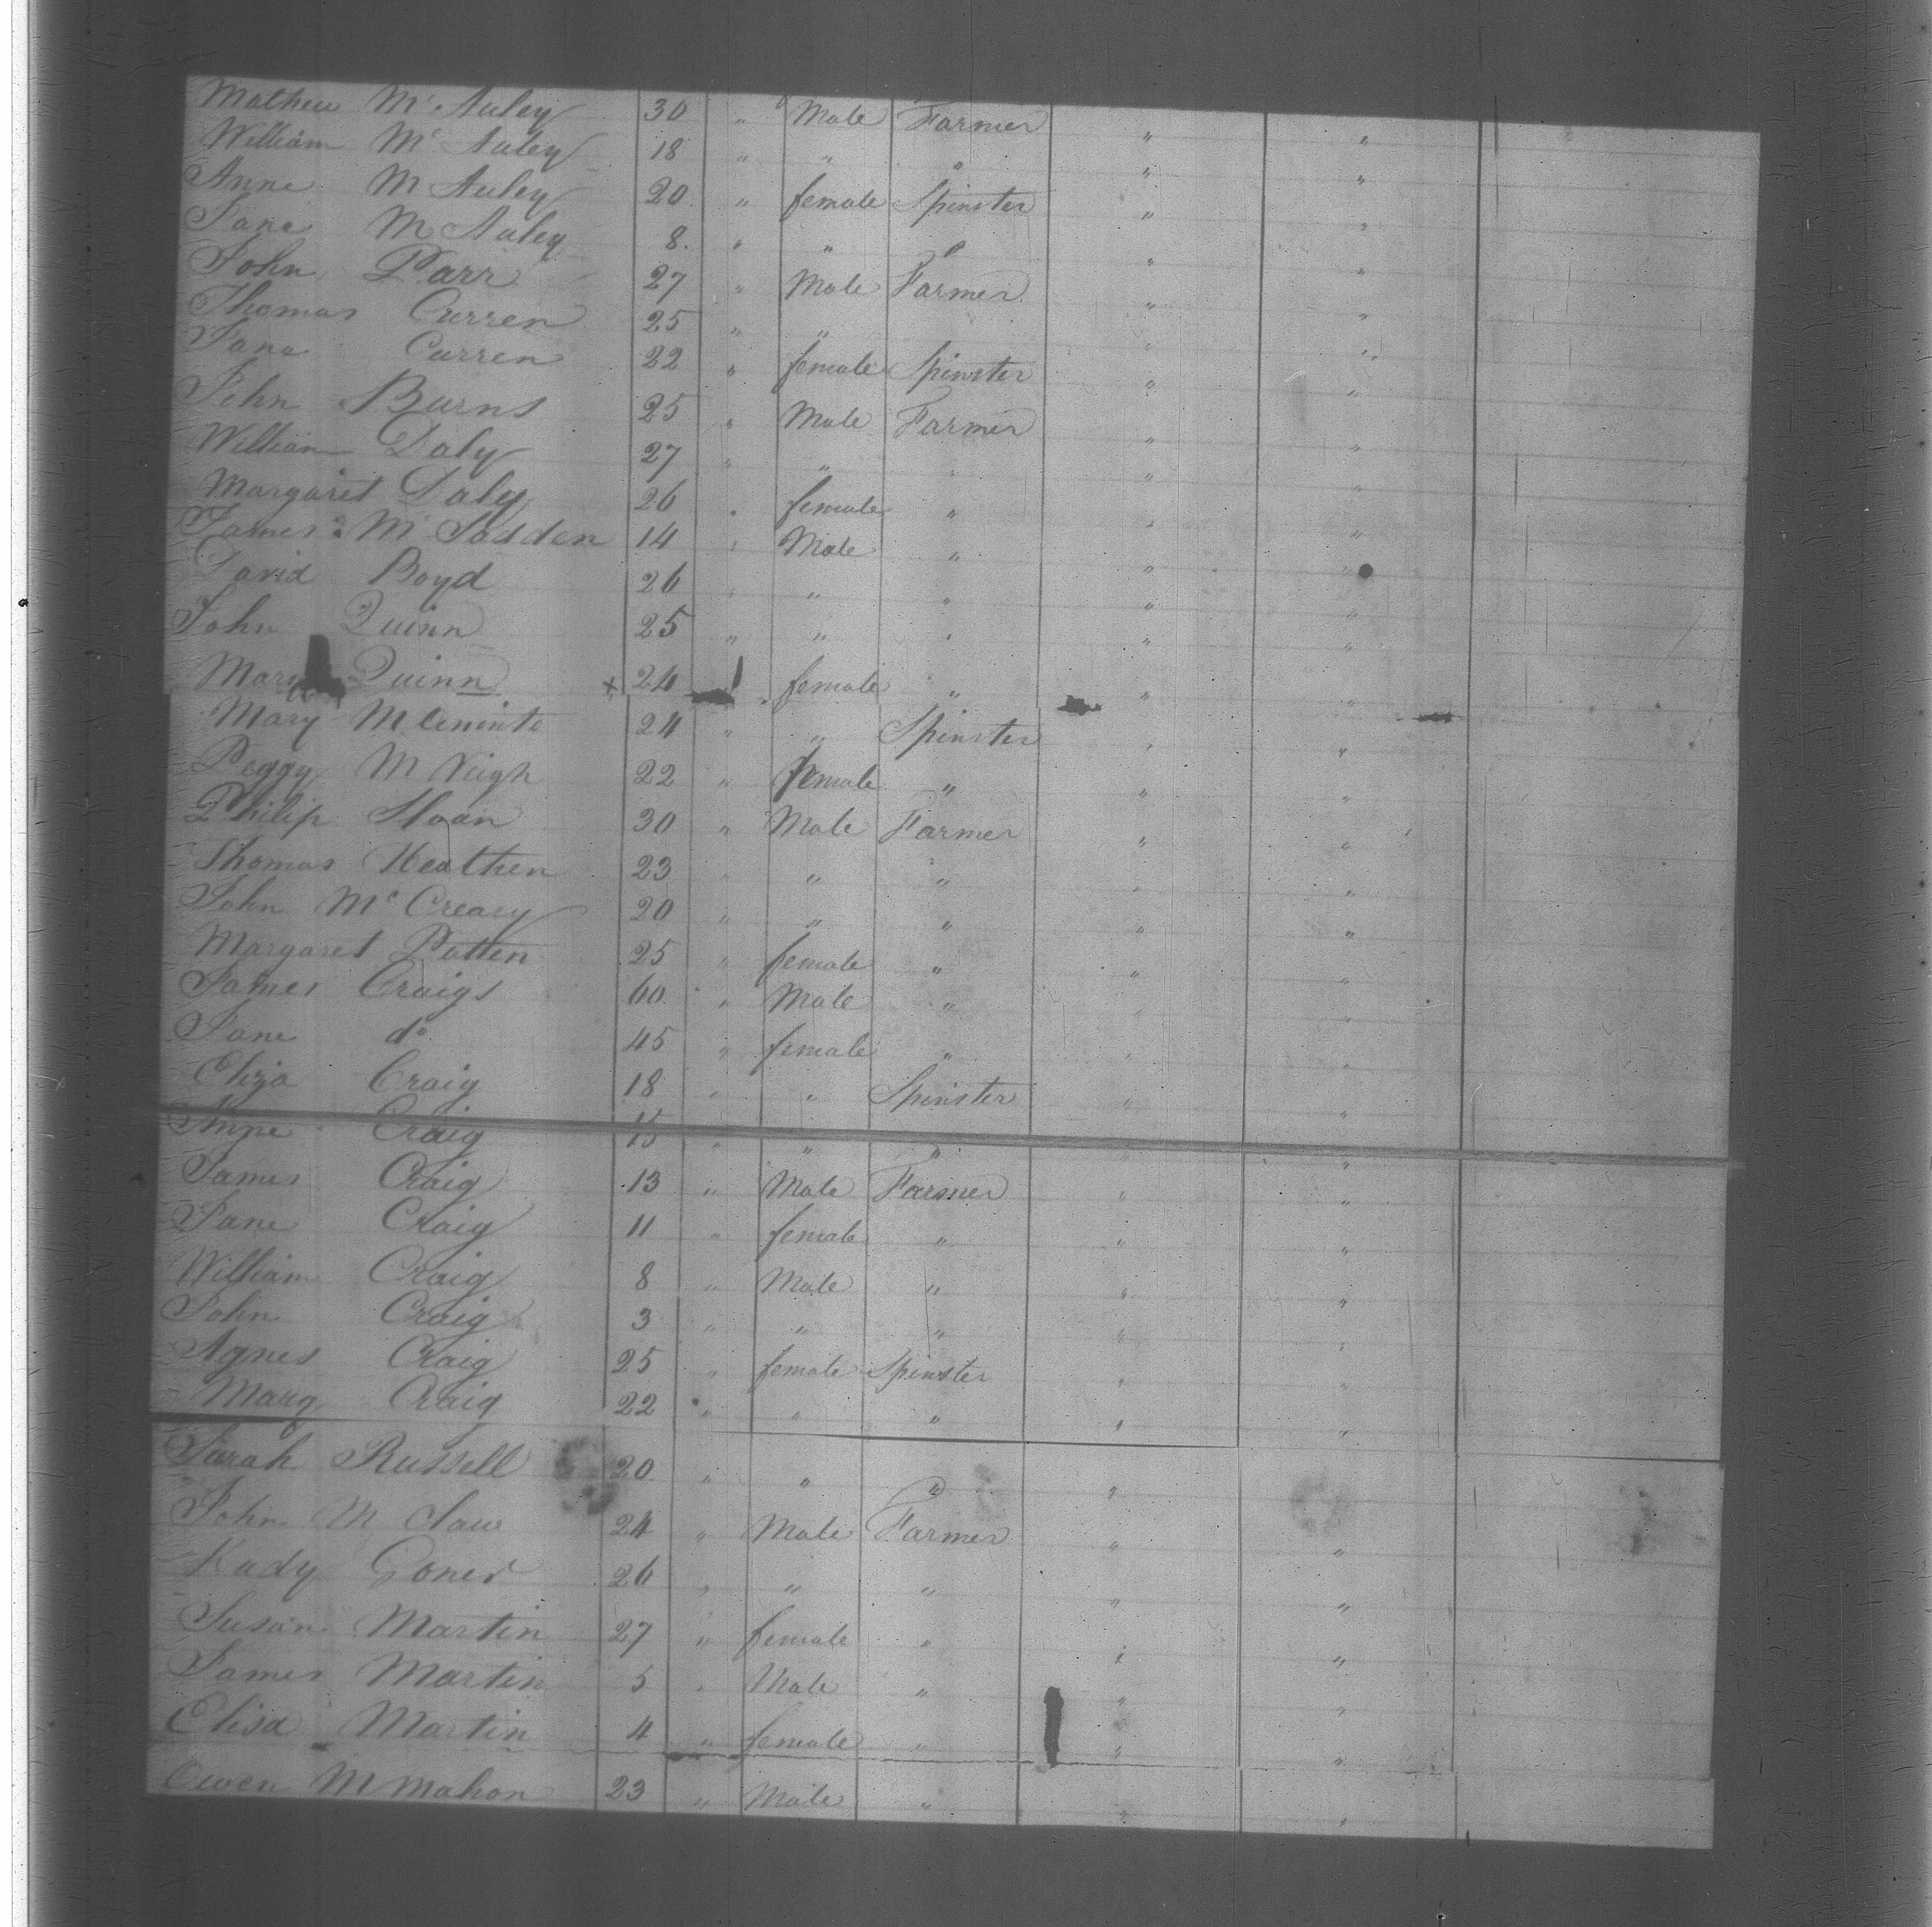 Mathew Mc Auley 30 " Male Farmer " "
William Mc Auley 18 " " " " "
Anne M Auley 20 " female Spinster " "
Jane M Auley 8 " " " " "
John Parr 27 " Male Farmer " "
Thomas Curren 25 " " " "
Jane Curren 22 " female Spinster " "
John Burns 25 " Male Farmer " "
William Daly 27 " " " " "
Margaret Daly 26 " female " " "
James Mc Fadden 14 " Male " " "
David Boyd 26 " " " " "
John Quinn 25 " " " " "
Mary Quinn x 24 " female " " "
Mary M 24 " " Spinster " "
Peggy M Veigh 22 " female " " "
Philip Sloan 30 " Male Farmer " "
Thomas Heathen 23 " " " " "
John Mc Creary 20 " " " " "
Margaret Patten 25 " female " " "
James Craigs 60 " Male " " "
Jane do 45 " female " " "
Eliza Craig 18 " " Spinster " "
Anne Craig 15 " " " " "
James Craig 13 " Male Farmer " "
Jane Craig 11 " female " " "
William Craig 8 " Male " " "
John Craig 3 " " " " "
Agnes Craig 25 " female Spinster " "
Mary Craig 22 " " " " "
Sarah Russell 20 " " " " "
John M 24 " Male Farmer " "
26 " " " " "
Susan Martin 27 " female " " "
James Martin 5 " Male " " "
Elisa Martin 4 " female " " "
Owen M Mahon 23 " Male " " "